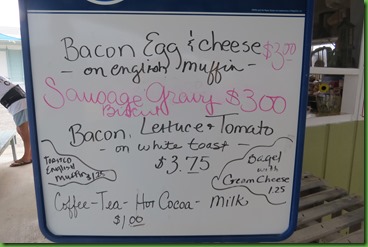 Bacon Egg & cheese $3.00
- on english muffin -
Sausage Gravy $3.00
Biscuit
Bacon, Lettuce & Tomato
- on white toast -
$3.75
Toasted
English
Muffin $1.25
Bagel
with
Cream Cheese
1.25
Coffee - Tea - Hot Cocoa - Milk
$1.00